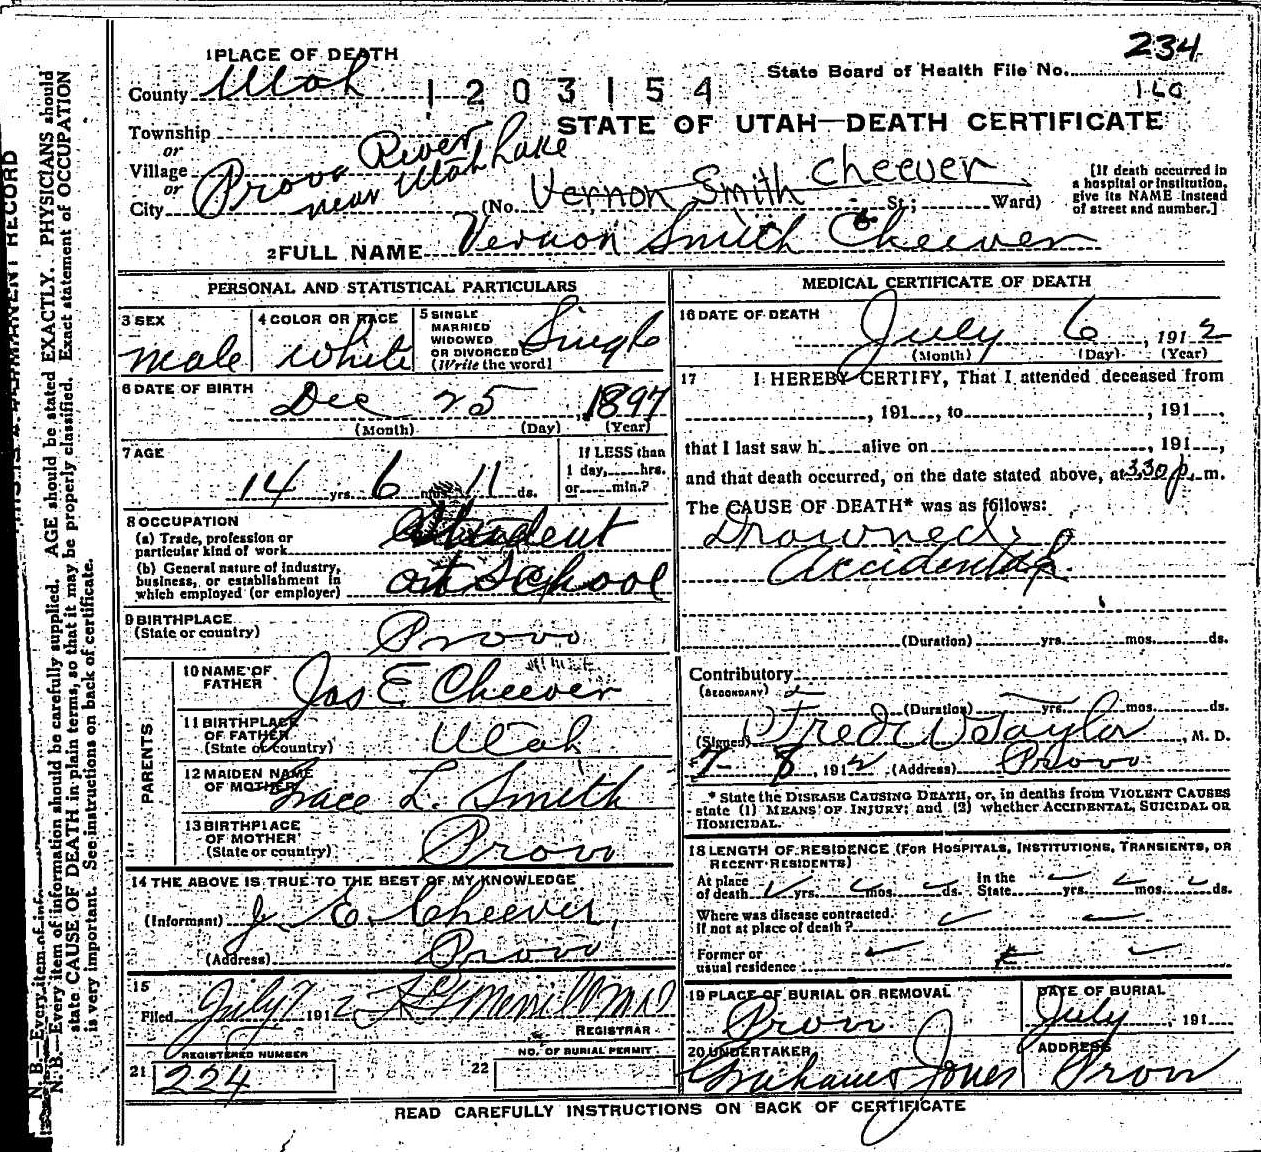 1 PLACE OF DEATH
234
State Board of Health File No.
County Utah
1203154
160
STATE OF UTAH—DEATH CERTIFICATE
Township
or
Village
or
City Provo River near Utah Lake
(No. Vernon Smith Cheever St.; Ward)
[If death occurred in a hospital or institution, give its NAME instead of street and number.]
2 FULL NAME Vernon Smith Cheever
PERSONAL AND STATISTICAL PARTICULARS
3 SEX
male
4 COLOR OR RACE
white
5 SINGLE MARRIED WIDOWED OR DIVORCED (Write the word)
Single
6 DATE OF BIRTH
Dec 25 1897
(Month) (Day) (Year)
7 AGE
14 yrs. 6 mos. 11 ds.
If LESS than 1 day, hrs. or min.?
8 OCCUPATION
(a) Trade, profession or particular kind of work Student
(b) General nature of industry, business, or establishment in which employed (or employer) at School
9 BIRTHPLACE
(State or country) Provo
PARENTS
10 NAME OF FATHER Jas E Cheever
11 BIRTHPLACE OF FATHER (State or country) Utah
12 MAIDEN NAME OF MOTHER Grace L. Smith
13 BIRTHPLACE OF MOTHER (State or country) Provo
14 THE ABOVE IS TRUE TO THE BEST OF MY KNOWLEDGE
(Informant) J. E. Cheever,
(Address) Provo
15
Filed July 7 1912
REGISTRAR
REGISTERED NUMBER
21 224
NO. OF BURIAL PERMIT
22
MEDICAL CERTIFICATE OF DEATH
16 DATE OF DEATH
July 6, 1912
(Month) (Day) (Year)
17 I HEREBY CERTIFY, That I attended deceased from
, 191 , to , 191 ,
that I last saw h alive on , 191 ,
and that death occurred, on the date stated above, at 330 p. m.
The CAUSE OF DEATH* was as follows:
Drowned
accidental
(Duration) yrs. mos. ds.
Contributory
(SECONDARY)
(Duration) yrs. mos. ds.
(Signed) Fred W Taylor, M. D.
7 8, 1912 (Address) Provo
* State the DISEASE CAUSING DEATH, or, in deaths from VIOLENT CAUSES
state (1) MEANS OF INJURY; and (2) whether ACCIDENTAL, SUICIDAL OR
HOMICIDAL.
18 LENGTH OF RESIDENCE (FOR HOSPITALS, INSTITUTIONS, TRANSIENTS, OR
RECENT RESIDENTS)
At place of death yrs. mos. ds. In the State yrs. mos. ds.
Where was disease contracted. if not at place of death?
Former or usual residence
19 PLACE OF BURIAL OR REMOVAL
Provo
DATE OF BURIAL
July , 191
20 UNDERTAKER
Graham & Jones
ADDRESS
Provo
READ CAREFULLY INSTRUCTIONS ON BACK OF CERTIFICATE
N. B.—Every item of information should be carefully supplied. AGE should be stated EXACTLY. PHYSICIANS should
state CAUSE OF DEATH in plain terms, so that it may be properly classified. Exact statement of OCCUPATION
is very important. See instructions on back of certificate.